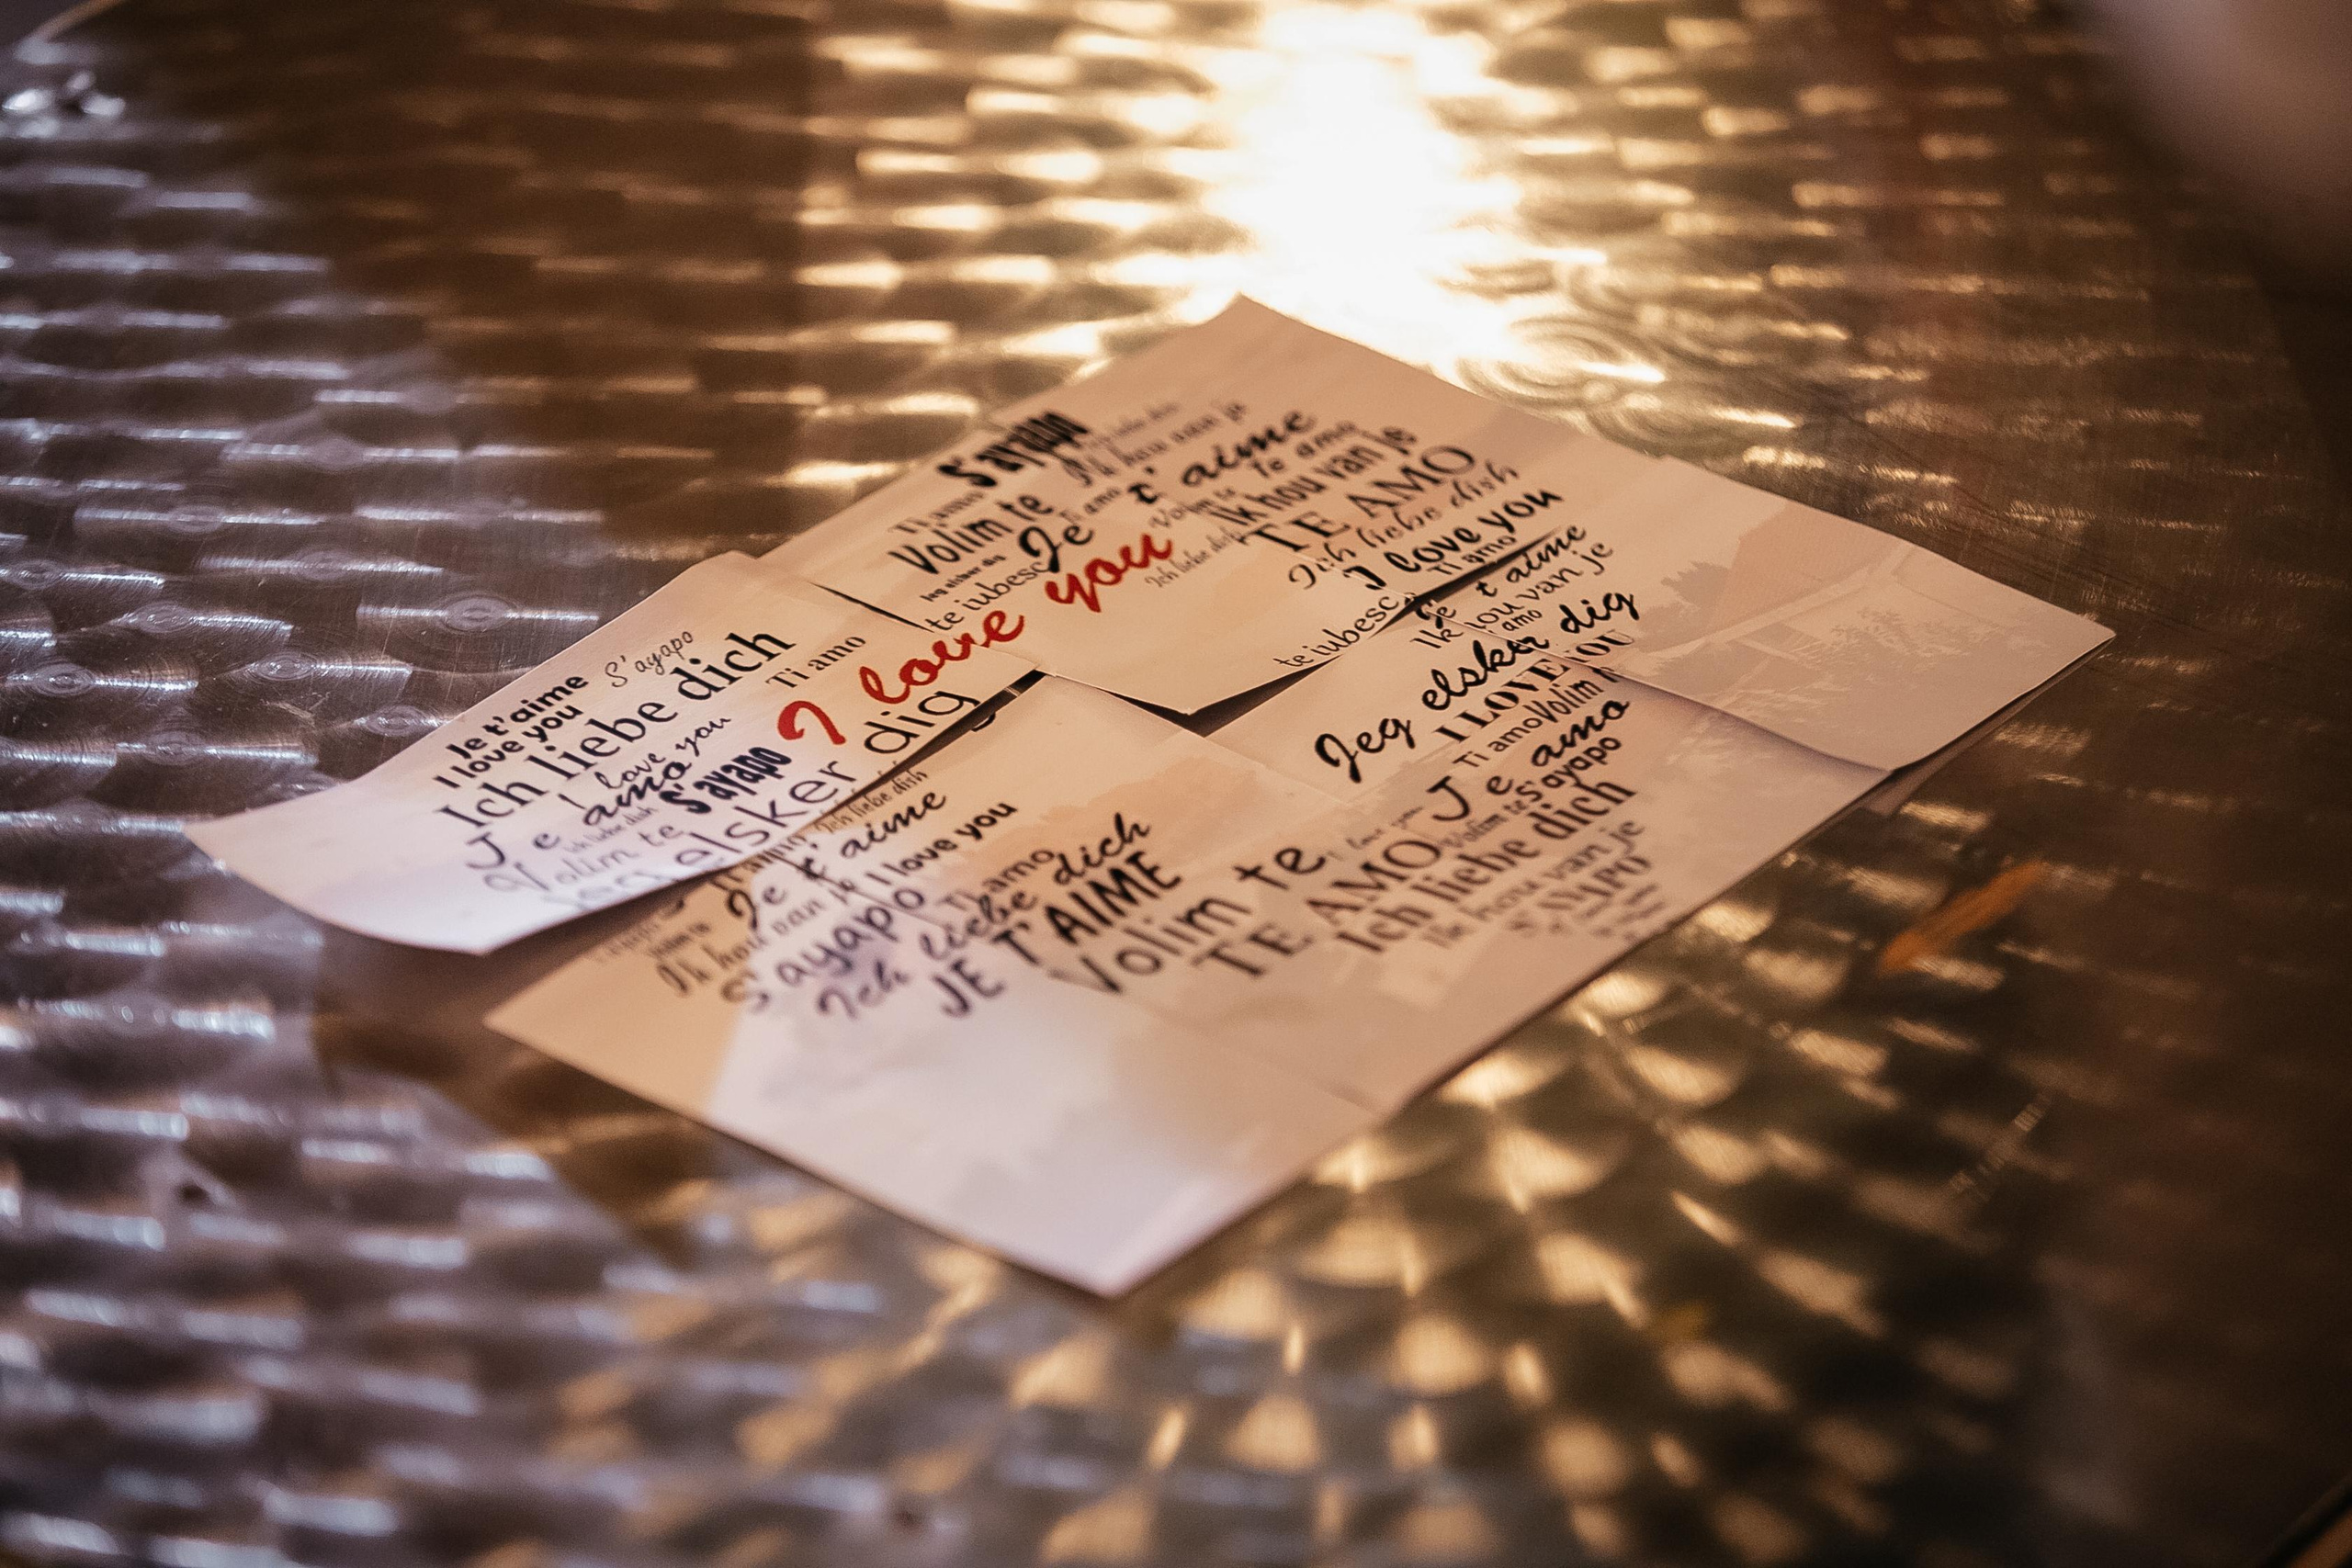 S'ayapo
Ik hou van je
Ti amo
Volim te
Je t'aime
Ti amo
Te amo
Jeg elsker dig
Volim te
Ik hou van je
te iubesc
TE AMO
I love you
Ich liebe dich
Ich liebe dish
I love you
te iubesc
Ti amo
Je t'aime
Ik hou van je
amo
Jeg elsker dig
I LOVE YOU
Ti amo
Volim
Je amo
Volim te
S'ayapo
Ich liebe dich
Ik hou van je
S'AYAPO
S'ayapo
Je t'aime
I love you
Ich liebe dich
Ti amo
I love you
Je amo
Ich liebe dish
S'ayapo
Volim te
jeg elsker dig
Ich liebe dish
Ti amo
Je t'aime
I love you
Volim te
Ik hou van je
S'ayapo
Ti amo
Ich liebe dich
JE T'AIME
Volim te
I love you
TE AMO